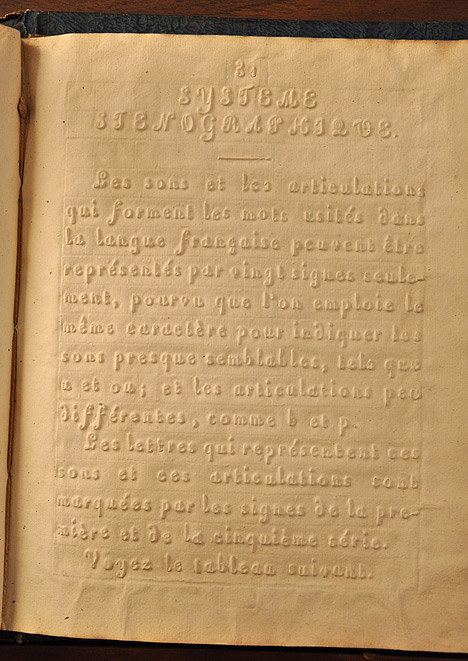 31
SYSTEME
STENOGRAPHIQUE.
Les sons et les articulations
qui forment les mots usités dans
la langue française peuvent être
représentés par vingt signes seule-
ment, pourvu que l'on emploie le
même caractère pour indiquer les
sons presque semblables, tels que
u et ou; et les articulations peu
différentes, comme b et p.
Les lettres qui représentent ces
sons et ces articulations sont
marquées par les signes de la pre-
mière et de la cinquième série.
Voyez le tableau suivant.